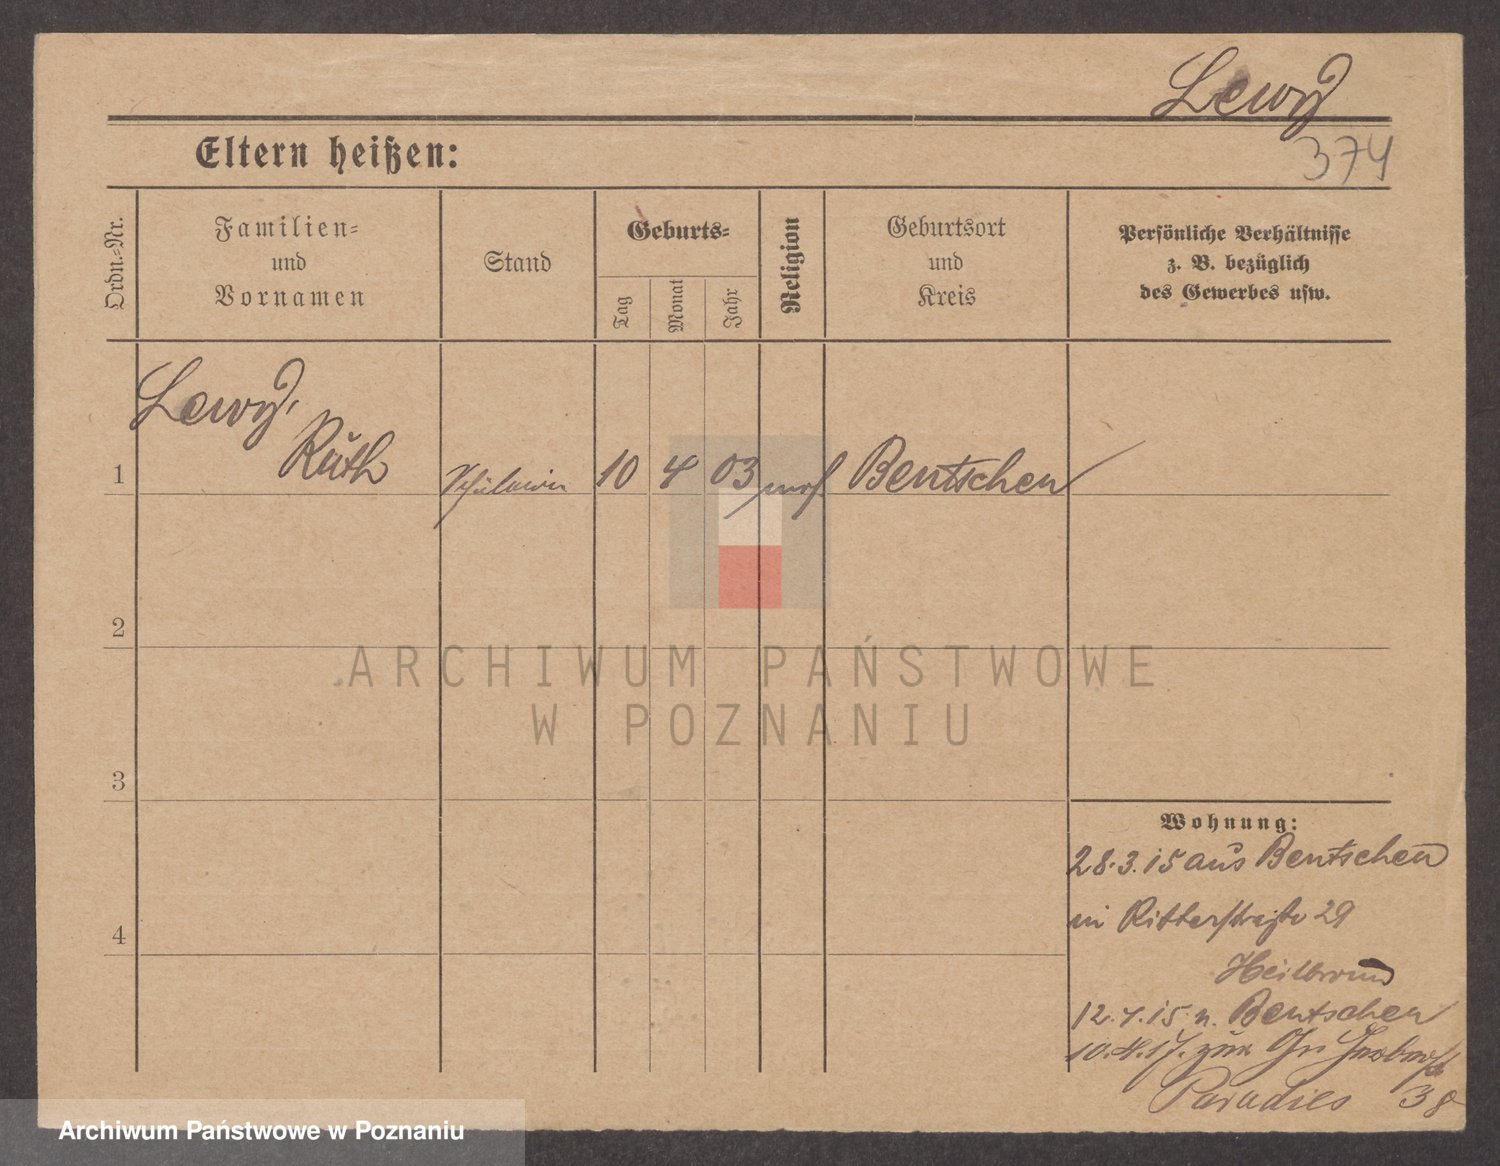 Lewy
374
Eltern heißen:
Ordn.-Nr.
Familien-
und
Vornamen
Stand
Geburts-
Tag
Monat
Jahr
Religion
Geburtsort
und
Kreis
Persönliche Verhältnisse
z. B. bezüglich
des Gewerbes usw.
Lewy,
Ruth
1
Schülerin
10
4
03
mos
Bentschen
2
3
4
Wohnung:
28.3.15 aus Bentschen
in Ritterstraße 29
Heilbronn
12.4.15 n. Bentschen
10.4.17. zur
Paradies 38
ARCHIWUM PAŃSTWOWE
W POZNANIU
Archiwum Państwowe w Poznaniu